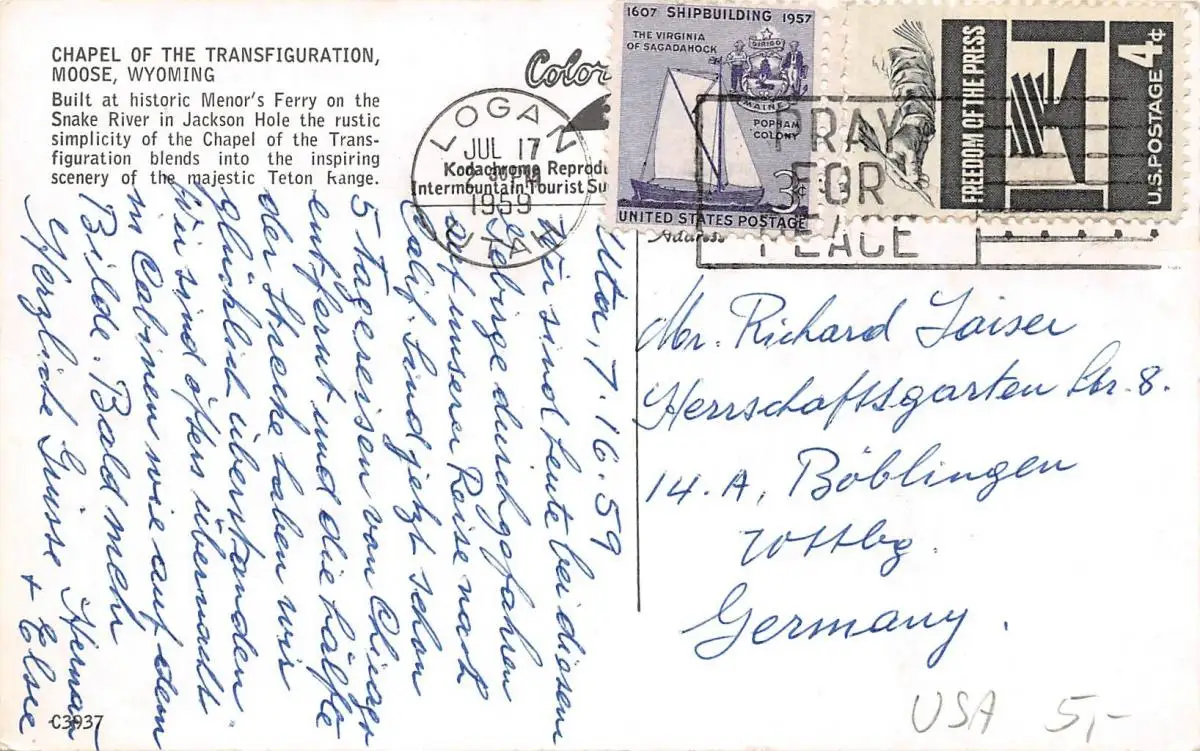 CHAPEL OF THE TRANSFIGURATION,
MOOSE, WYOMING
Built at historic Menor's Ferry on the
Snake River in Jackson Hole the rustic
simplicity of the Chapel of the Trans-
figuration blends into the inspiring
scenery of the majestic Teton Range.
Color
Kodachrome Reprodu
Intermountain Tourist Su
LOGAN
JUL 17
1959
UTAH
1607 SHIPBUILDING 1957
THE VIRGINIA
OF SAGADAHOCK
DIRIGO
MAINE
POPHAM
COLONY
3¢
UNITED STATES POSTAGE
FREEDOM OF THE PRESS
U.S. POSTAGE 4¢
PRAY
FOR
PEACE
Address
Uta, 7.16.59
Wir sind heute bei diesen
Gebirge durchgefahren
auf unserer Reise nach
Calif. Sind jetzt schon
5 Tagereisen von Chicago
entfernt und die Hälfte
der Strecke haben wir
glücklich überstanden.
Wir sind öfters übernacht
in Cabinen wie auf dem
Bilde. Bald mehr
Herzliche Grüsse Herman
+ Elsie
Mr. Richard Jaiser
Herrschaftsgarten Str. 8.
14.A, Böblingen
Wttbg.
Germany.
C3937
USA 5,-